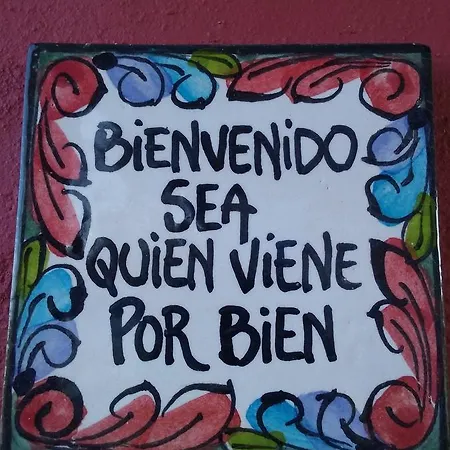 BiENVENiDO
SEA
QUiEN ViENE
POR BiEN